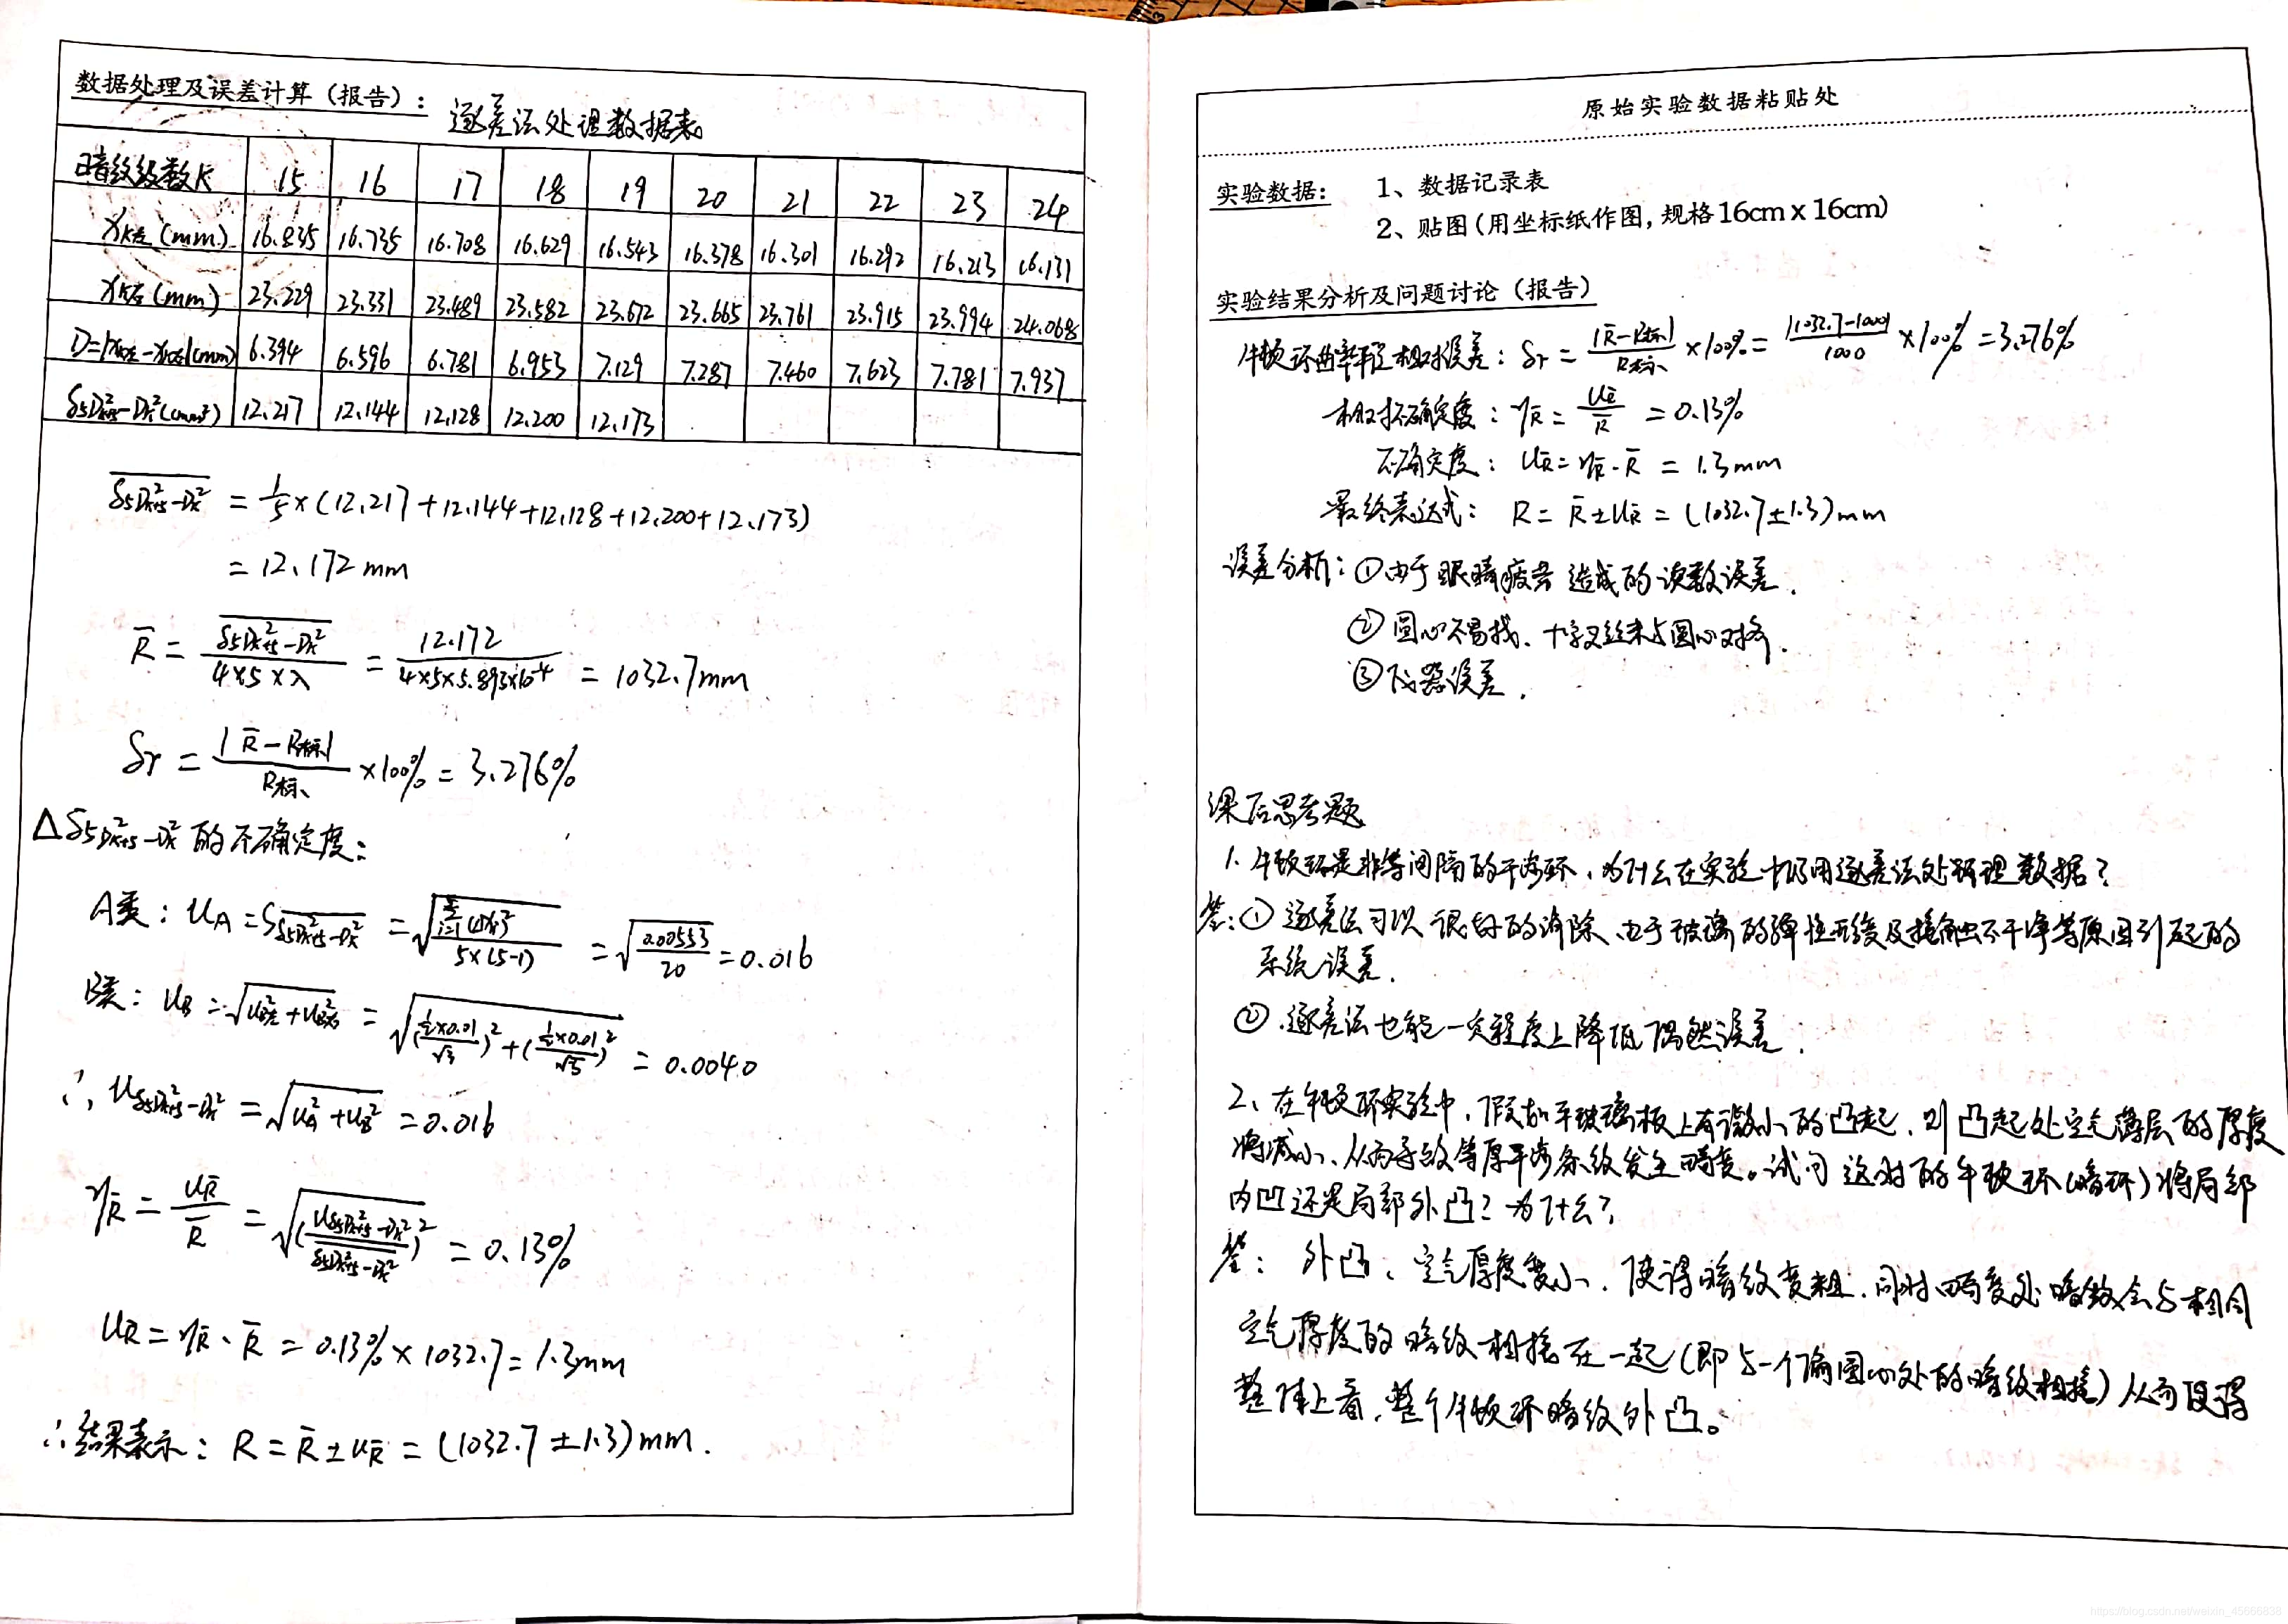 数据处理及误差计算（报告）： 逐差法处理数据表
暗纹级数K 15 16 17 18 19 20 21 22 23 24
XK左(mm) 16.835 16.735 16.708 16.629 16.543 16.378 16.301 16.292 16.213 16.131
XK右(mm) 23.229 23.331 23.489 23.582 23.672 23.665 23.761 23.915 23.994 24.068
D=|XK左-XK右|(mm) 6.394 6.596 6.781 6.953 7.129 7.287 7.460 7.623 7.781 7.937
δ5D²K+5-D²K(mm²) 12.217 12.144 12.128 12.200 12.173
δ5D²K+5-D²K = 1/5×(12.217+12.144+12.128+12.200+12.173)
= 12.172 mm
R̄ = δ5D²K+5-D²K / 4×5×λ = 12.172 / 4×5×5.893×10⁻⁴ = 1032.7mm
δr = |R̄-R标| / R标 ×100% = 3.276%
Δδ5D²K+5-D²K 的不确定度：
A类：UA = Sδ5D²K+5-D²K = √ / 5×(5-1) = √0.00553 / 20 = 0.016
B类：UB = √U²B左+U²B右 = √(½×0.01/√3)²+(½×0.01/√3)² = 0.0040
∴ Uδ5D²K+5-D²K = √U²A+U²B = 0.016
ηR̄ = UR̄ / R̄ = √(Uδ5D²K+5-D²K / δ5D²K+5-D²K)² = 0.13%
UR̄ = ηR̄·R̄ = 0.13%×1032.7 = 1.3mm
∴结果表示：R = R̄±UR̄ = (1032.7±1.3)mm.
原始实验数据粘贴处
实验数据： 1、数据记录表
2、贴图（用坐标纸作图，规格16cm x 16cm）
实验结果分析及问题讨论（报告）
牛顿环曲率半径相对误差：δr = |R̄-R标| / R标 ×100% = |1032.7-1000| / 1000 ×100% = 3.276%
相对不确定度：ηR̄ = UR̄ / R̄ = 0.13%
不确定度：UR̄ = ηR̄·R̄ = 1.3mm
最终表达式：R = R̄±UR̄ = (1032.7±1.3)mm
误差分析：①由于眼睛疲劳造成的读数误差.
②圆心不易找、十字叉丝未与圆心对齐.
③仪器误差.
课后思考题
1. 牛顿环是非等间隔的干涉环，为什么在实验中仍用逐差法处理数据？
答：①逐差法可以很好的消除、由于玻璃的弹性形变及接触不干净等原因引起的
系统误差.
②.逐差法也能一定程度上降低偶然误差.
2、在牛顿环实验中，假如平玻璃板上有微小的凸起，则凸起处空气薄层的厚度
将减小、从而导致等厚干涉条纹发生畸变。试问这时的牛顿环(暗环)将局部
内凹还是局部外凸？为什么？
答：外凸、空气厚度变小、使得暗纹变粗.同时畸变处暗纹会与相同
空气厚度的暗纹相接在一起(即与一个偏圆心处的暗纹相接)从而使得
整体上看，整个牛顿环暗纹外凸。
https://blog.csdn.net/weixin_45666838